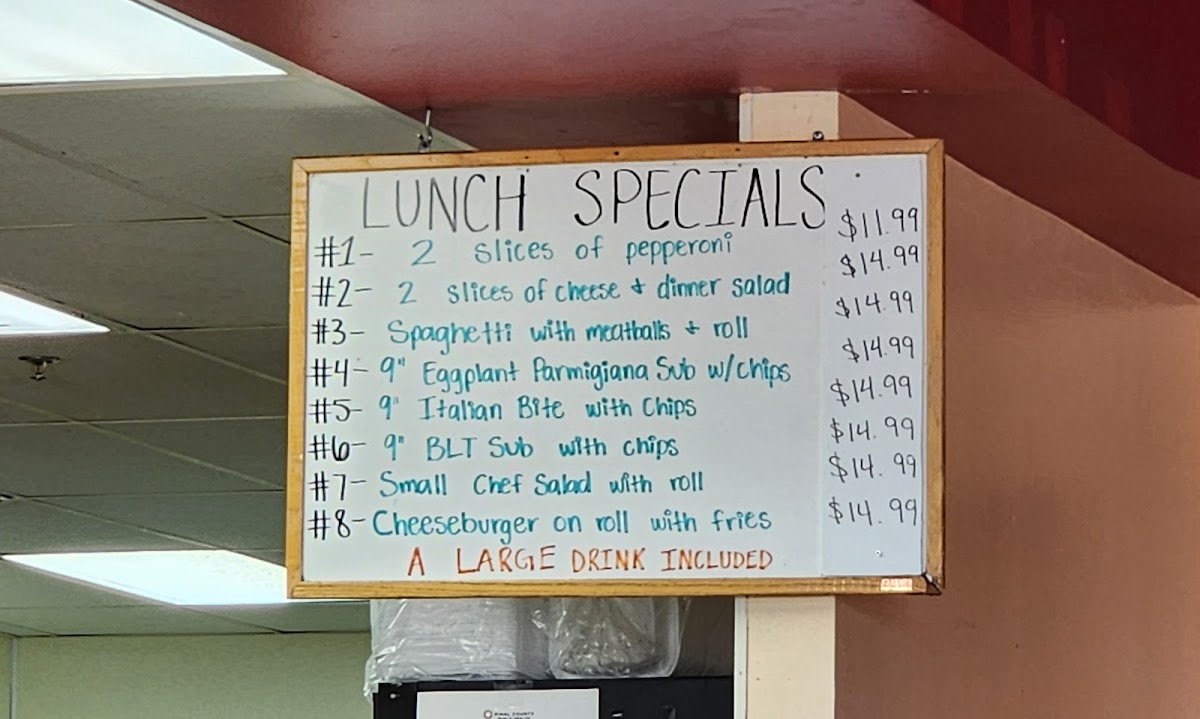 LUNCH SPECIALS
#1- 2 slices of pepperoni $11.99
#2- 2 slices of cheese + dinner salad $14.99
#3- Spaghetti with meatballs + roll $14.99
#4- 9" Eggplant Parmigiana Sub w/chips $14.99
#5- 9" Italian Bite with Chips $14.99
#6- 9" BLT Sub with chips $14.99
#7- Small Chef Salad with roll $14.99
#8- Cheeseburger on roll with fries $14.99
A LARGE DRINK INCLUDED
PINAL COUNTY